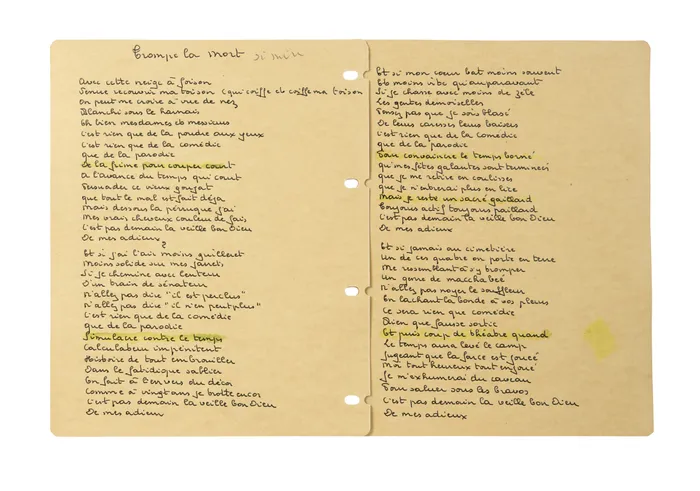 Trompe la mort si min
Avec cette neige à foison
Venue recouvrir ma toison (qui coiffe et coiffe ma toison
On peut me croire à vue de nez
Blanchi sous le harnais
Eh bien mesdames et messieurs
C'est rien que de la poudre aux yeux
C'est rien que de la comédie
que de la parodie
De la frime pour couper court
A l'avance du temps qui court
Persuader ce vieux goujat
que tout le mal est fait déjà
Mais dessous la perruque j'ai
Mes vrais cheveux couleur de jais
C'est pas demain la veille bon Dieu
De mes adieux
Et si j'ai l'air moins guilleret
Moins solide sur mes jarrets
Si je chemine avec lenteur
D'un train de sénateur
N'allez pas dire "il est perclus"
N'allez pas dire "il n'en peut plus"
C'est rien que de la comédie
que de la parodie
Simulacre contre le temps
Calculateur impénitent
Histoire de tout embrouiller
Dans le fatidique sablier
En fait à l'envers du décor
Comme à vingt ans je trotte encor
C'est pas demain la veille bon Dieu
De mes adieux
Et si mon cœur bat moins souvent
Et moins vite qu'auparavant
Si je chasse avec moins de zèle
Les gentes demoiselles
Pensez pas que je sois blasé
De leurs caresses leurs baisers
C'est rien que de la comédie
que de la parodie
Pour convaincre le temps borné
qu'mes fêtes galantes sont terminées
que je me retire en coulisses
que je n'entrerai plus en lice
Mais je reste un sacré gaillard
Toujours actif toujours paillard
C'est pas demain la veille bon Dieu
De mes adieux
Et si jamais au cimetière
Un de ces quatre on porte en terre
Me ressemblant à s'y tromper
Un genre de macchabée
N'allez pas noyer le souffleur
En lachant la bonde à vos pleurs
Ce sera rien que comédie
Rien que fausse sortie
Et puis coup de théatre quand
Le temps aura levé le camp
Jugeant que la farce est jouée
Moi tout heureux tout enjoué
Je m'exhumerai du caveau
Pour saluer sous les bravos
C'est pas demain la veille bon Dieu
De mes adieux